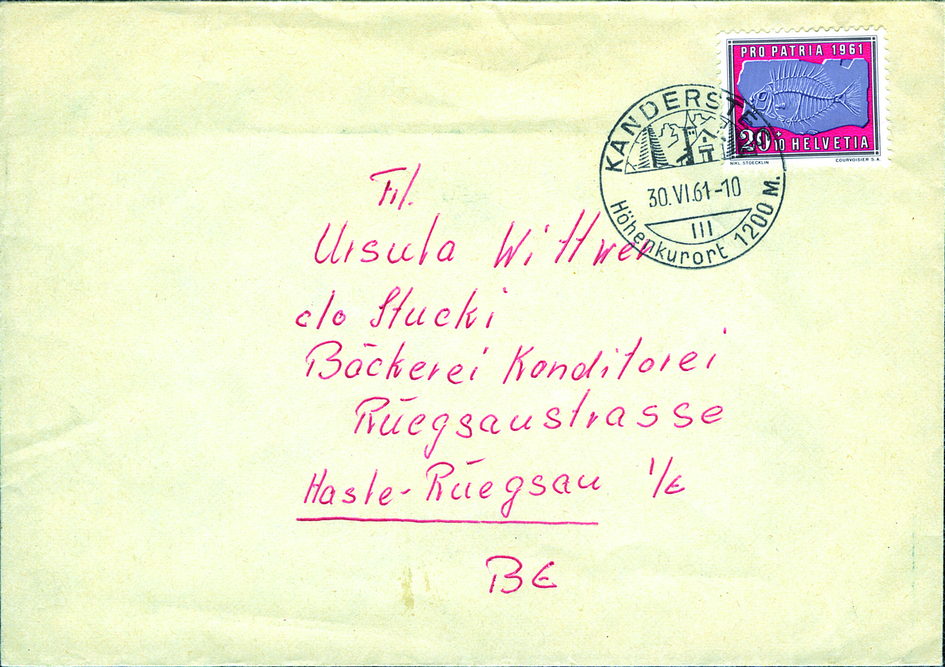 PRO PATRIA 1961
20+10 HELVETIA
NIKL. STOECKLIN COURVOISIER S.A.
KANDERSTEG
30.VI.61-10
III
Höhenkurort 1200 M.
Frl.
Ursula Wittwer
c/o Stucki
Bäckerei Konditorei
Rüegsaustrasse
Hasle-Rüegsau i/E
BE